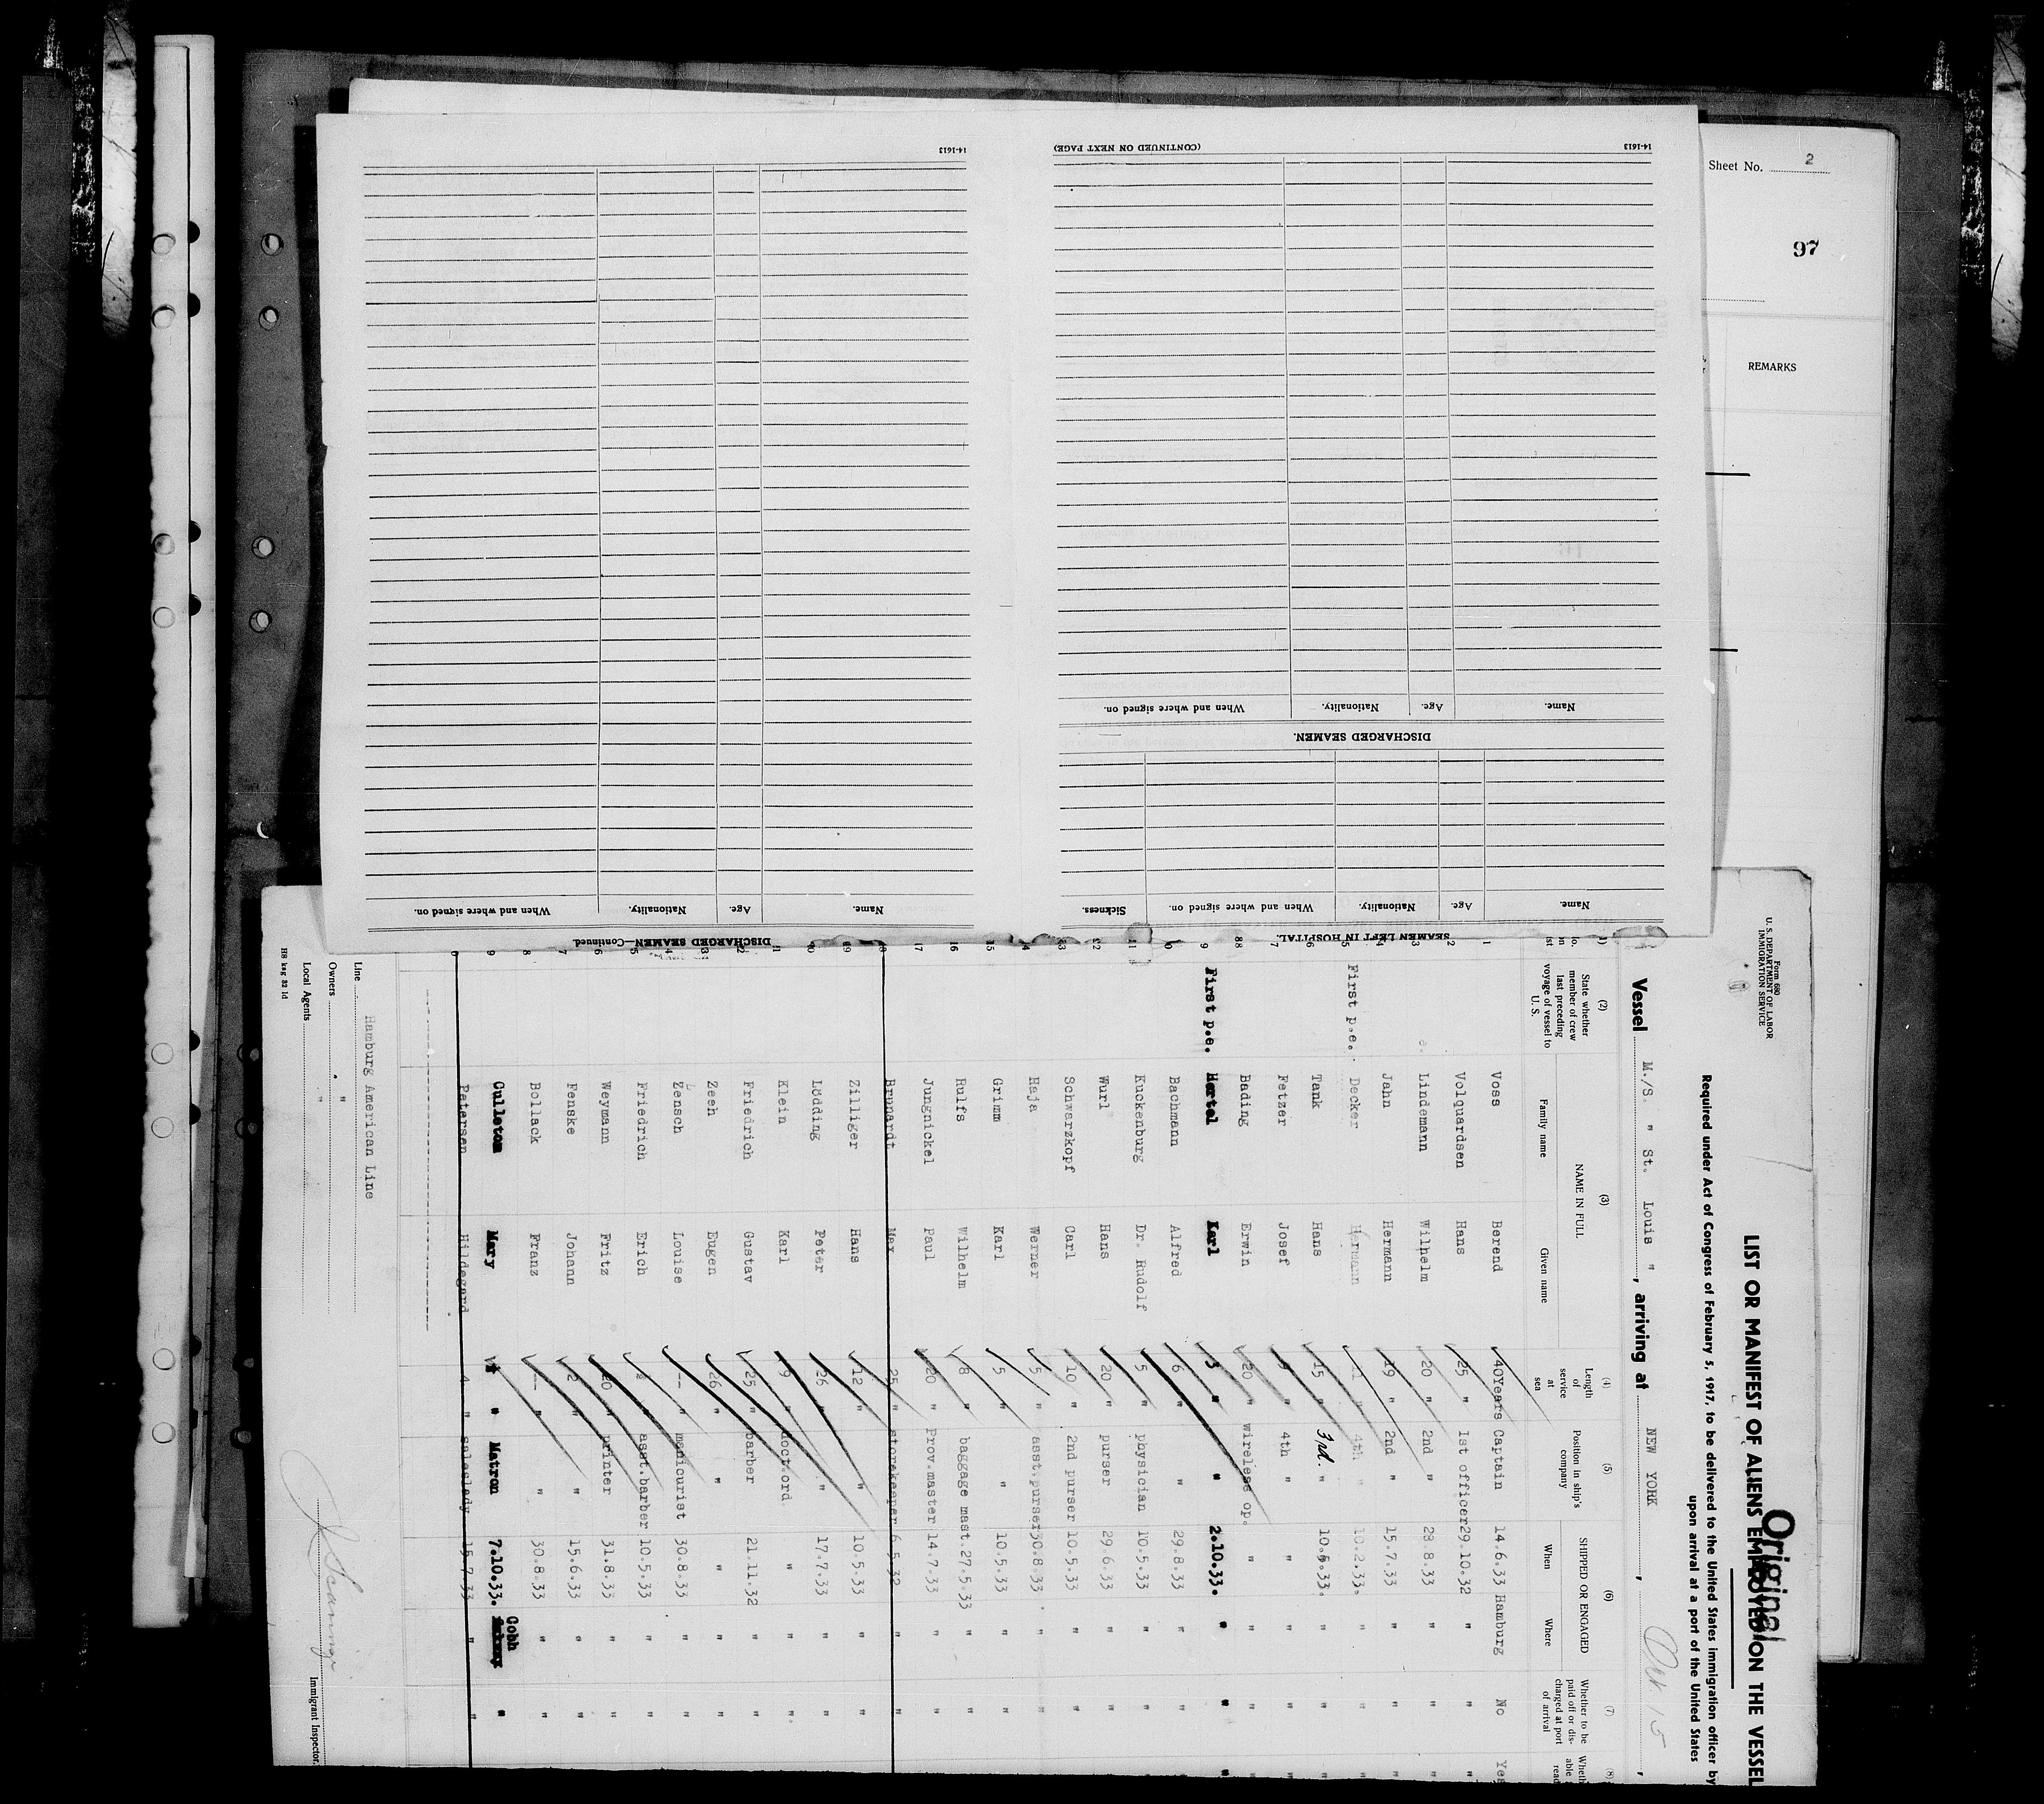 Sheet No. 2
97
REMARKS
14-1613
(CONTINUED ON NEXT PAGE)
14-1613
SEAMEN LEFT IN HOSPITAL.
Name. Age. Nationality. When and where signed on. Sickness.
DISCHARGED SEAMEN.
Name. Age. Nationality. When and where signed on.
DISCHARGED SEAMEN—Continued.
Name. Age. Nationality. When and where signed on.
Form 680
U. S. DEPARTMENT OF LABOR
IMMIGRATION SERVICE
Original
LIST OR MANIFEST OF ALIENS EMPLOYED ON THE VESSEL
Required under Act of Congress of February 5, 1917, to be delivered to the United States immigration officer by
upon arrival at a port of the United States
Vessel M./S. " St. Louis ", arriving at NEW YORK, Oct 15,
(2) (3) (4) (5) (6) (7) (8)
State whether member of crew last preceding voyage of vessel to U. S.
NAME IN FULL
Family name Given name
Length of service at sea
Position in ship's company
SHIPPED OR ENGAGED
When Where
Whether to be paid off or discharged at port of arrival
1 Voss Berend 40Years Captain 14.6.33 Hamburg No Yes
2 Volquardsen Hans 25 " 1st officer 29.10.32 " "
3 Lindemann Wilhelm 20 " 2nd " 28.8.33 " "
4 Jahn Hermann 19 " 2nd " 15.7.33 " "
5 First p.e. Decker Hermann 11 " 4th " 10.2.33. " "
6 Tank Hans 15 " 3rd. " 10.5.33. " "
7 Fetzer Josef 9 " 4th " " " "
88 Bading Erwin 20 " wireless op. " " "
9 First p.e. Hertel Karl 3 " " 2.10.33. " "
10 Bachmann Alfred 6 " " 29.8.33 " "
11 Kuckenburg Dr. Rudolf 5 " physician 10.5.33 " "
12 Wurl Hans 20 " purser 29.6.33 " "
13 Schwarzkopf Carl 10 " 2nd purser 10.5.33 " "
14 Haja Werner 5 " asst.purser 30.8.33 " "
15 Grimm Karl 5 " " 10.5.33 " "
16 Rulfs Wilhelm 8 " baggage mast. 27.5.33 " "
17 Jungnickel Paul 20 " Prov.master 14.7.33 " "
18 Brunardt Max 25 " storekeeper 6.5.32 " "
19 Zilliger Hans 12 " " 10.5.33 " "
20 Lödding Peter 26 " " 17.7.33 " "
21 Klein Karl 9 " " " "
22 Friedrich Gustav 25 " barber 21.11.32 " "
23 Zeeh Eugen 26 " " " " "
24 Zensch Louise -- " manicurist 30.8.33 " "
25 Friedrich Erich " asst.barber 10.5.33 " "
26 Weymann Fritz 20 " printer 31.8.33 " "
27 Fenske Johann 2 " " 15.6.33 " "
28 Bollack Franz -- " " 30.8.33 " "
29 Culleton Mary " Matron 7.10.33. Cobh "
30 Petersen Hildegard 4 " saleslady 15.7.33 " "
Line Hamburg American Line
Owners " "
Local Agents "
Immigrant Inspector.